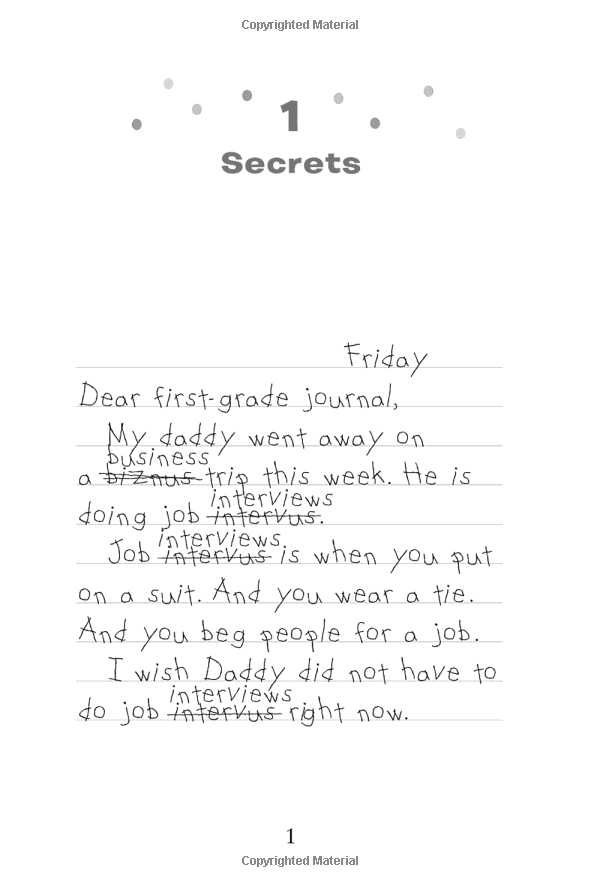 Copyrighted Material
1
Secrets
Friday
Dear first-grade journal,
My daddy went away on
business
a biznus trip this week. He is
interviews
doing job intervus.
interviews
Job intervus is when you put
on a suit. And you wear a tie.
And you beg people for a job.
I wish Daddy did not have to
interviews
do job intervus right now.
1
Copyrighted Material